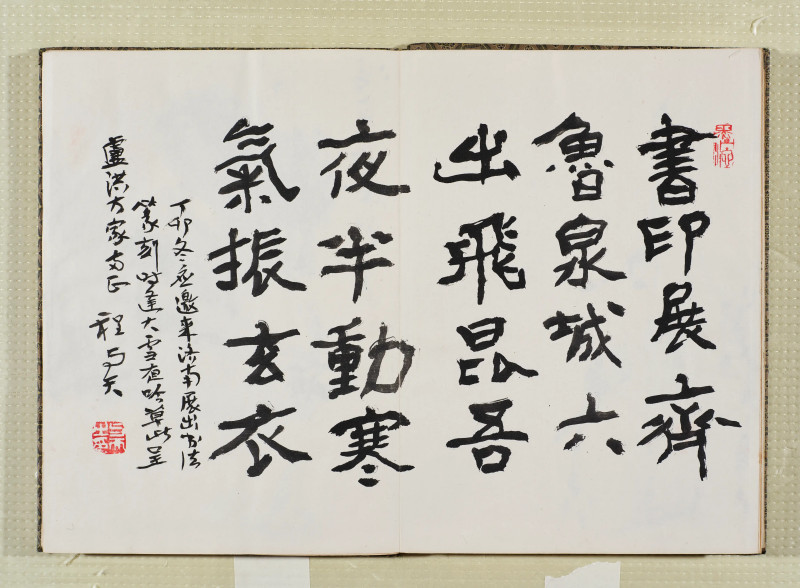 書印展齊
魯泉城六
出飛昆吾
夜半動寒
氣振玄衣
丁卯冬應邀來濟南展出書法
篆刻時逢大雪夜吟草此呈
盧洪方家両正 程与天